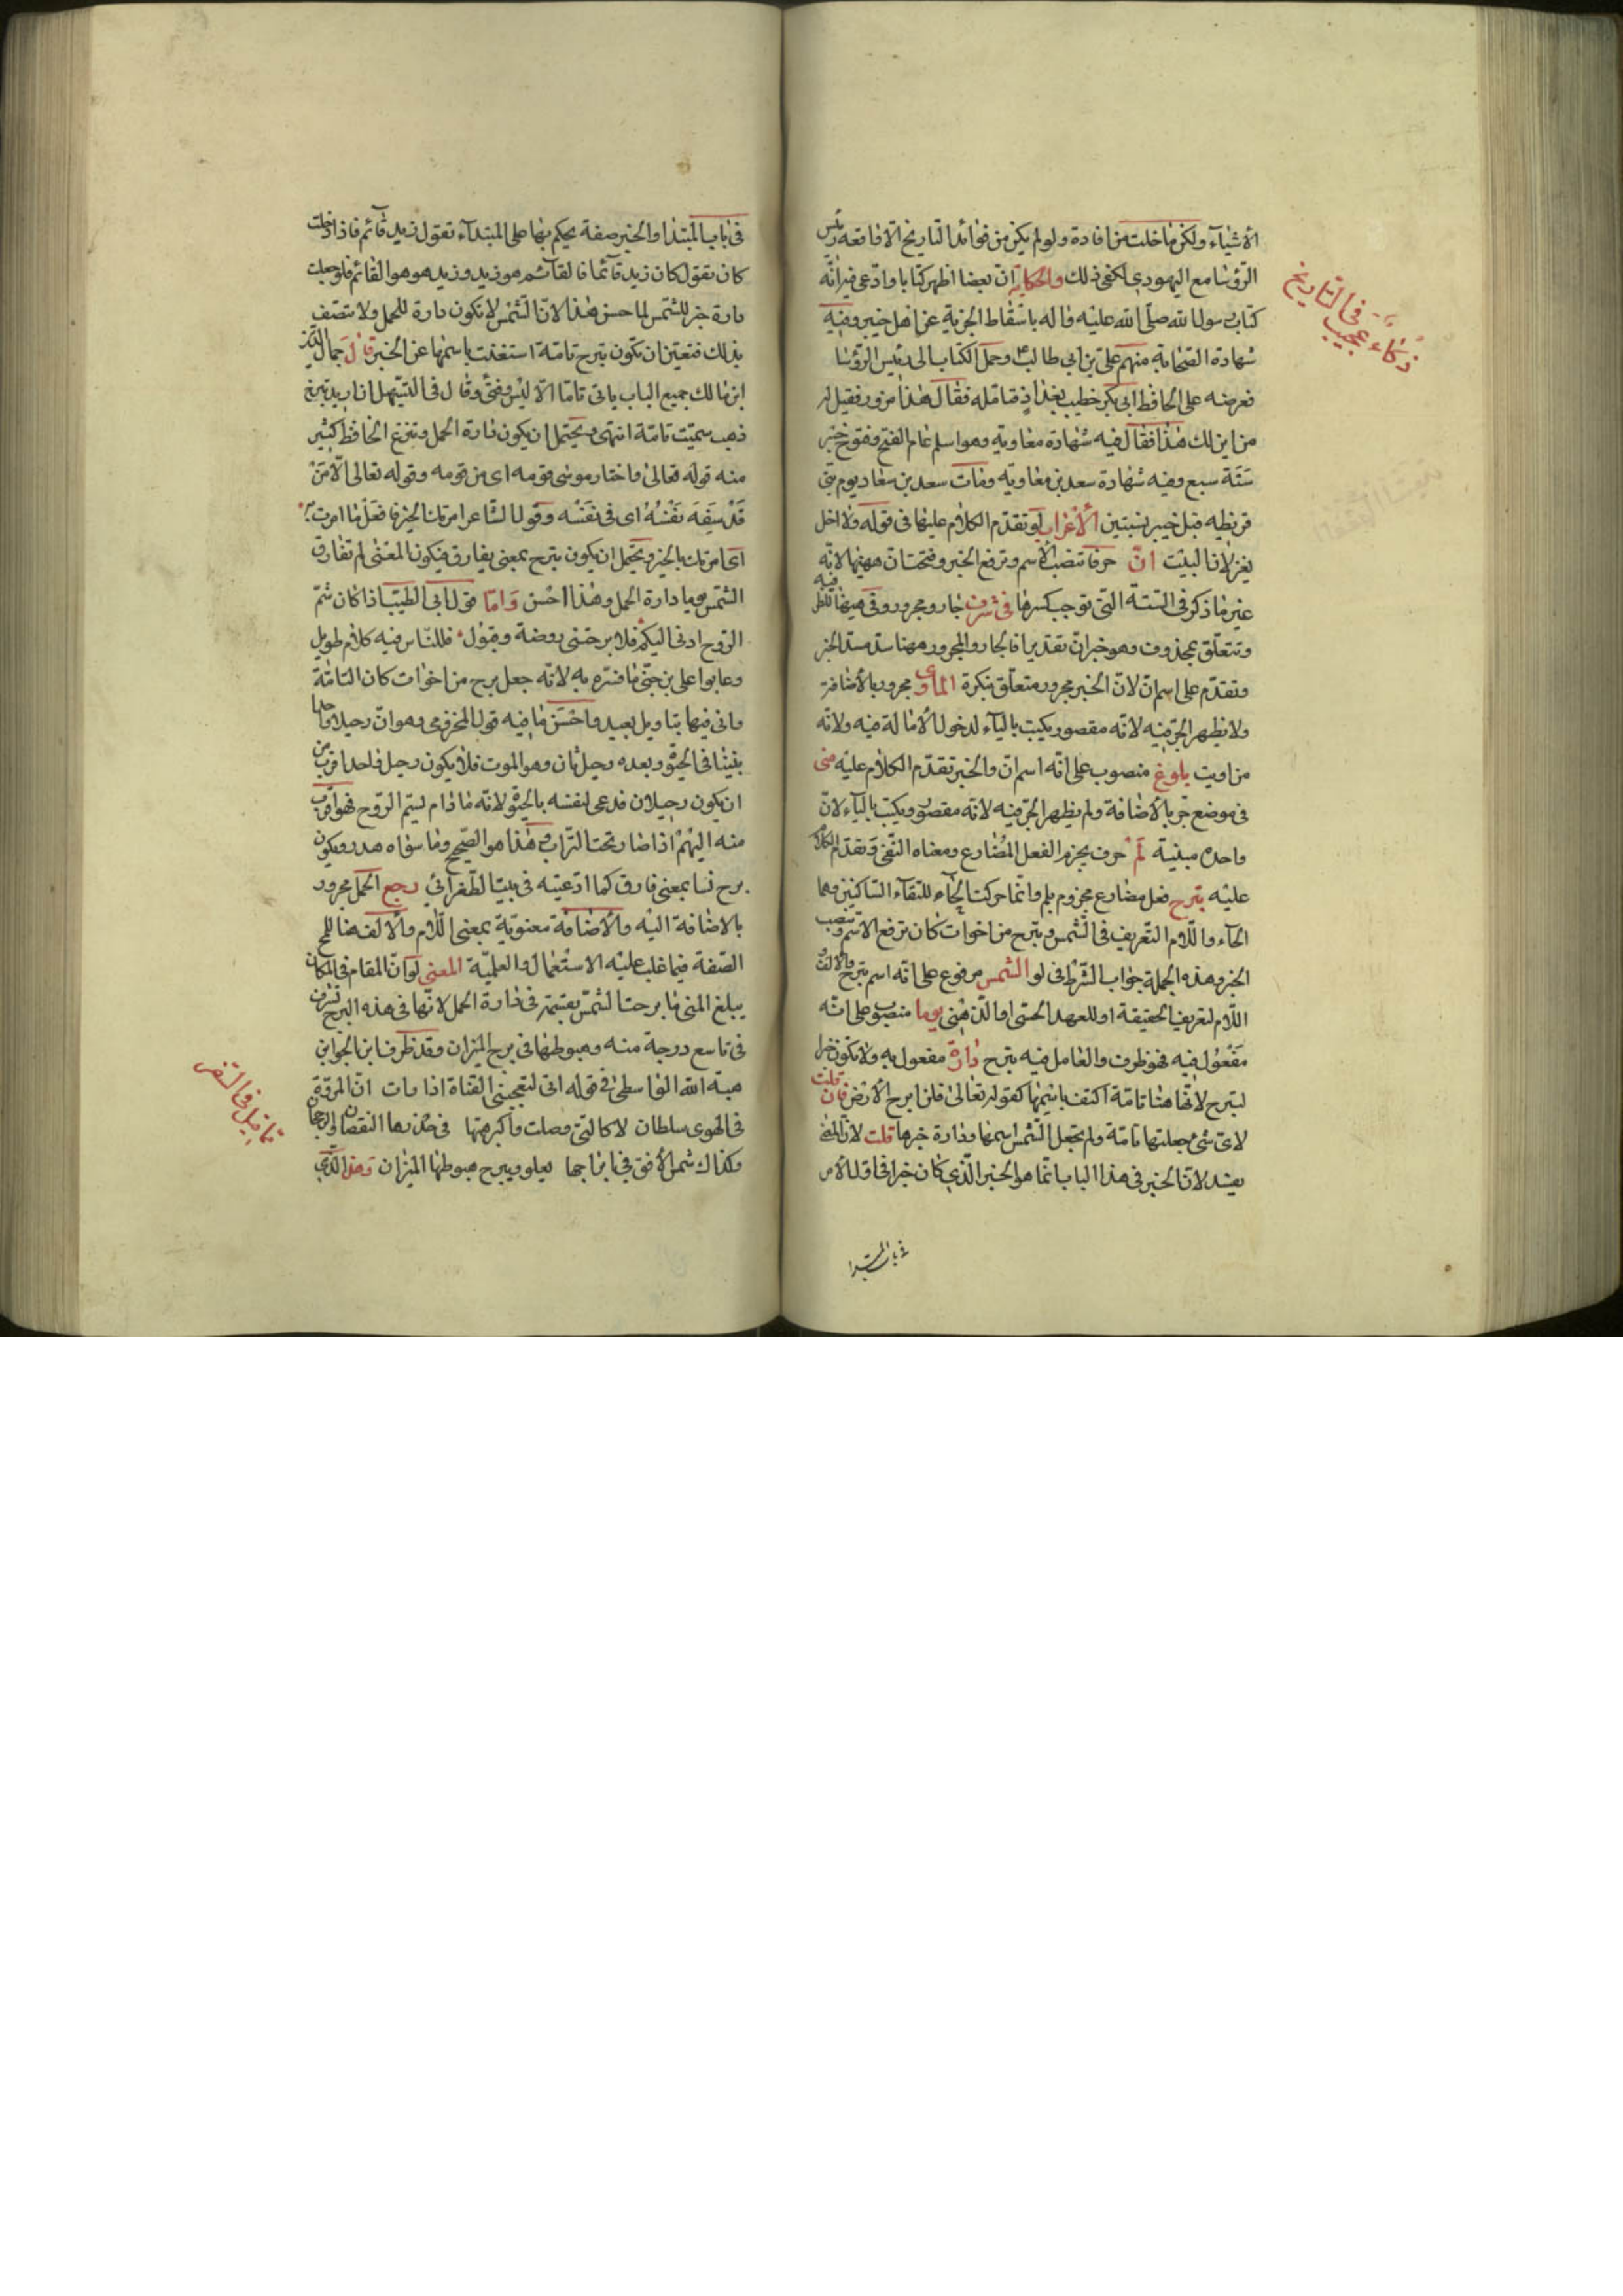 الأشياء ولكن ما خلت من افادة ولو لم يكن من فوائد التاريخ الا واقعة رئيس
الرؤسا مع اليهودى لكفى ذلك والحكاية ان بعضا اظهر كتابا وادّعى فيه انّه
كتاب رسول الله صلّى الله عليه وآله باسقاط الجزية عن اهل خيبر وفيه
شهادة الصّحابة منهم على بن ابي طالب وحمل الكتاب الى رئيس الرؤسا
فعرضه على الحافظ ابى بكر خطيب بغداد فتامّله فقال هذا مزور فقيل له
من اين لك هذا فقال فيه شهادة معاوية وهو اسلم عام الفتح وفتوح خيبر
سنة سبع وفيه شهادة سعد بن معاوية ومات سعد بن معاد يوم بنى
قريظه قبل خيبر بسنتين الأعراب لو تقدّم الكلام عليها فى قوله ولا اخل
بغزلان البيت انّ حرف تنصب الأسم وترفع الخبر وفتحت ان ههنا لانّه
غير ما ذكر فى الستّة التى توجب كسرها فى شرف جار ومجرور وفى ههنا للظرفيه
وتتعلّق بمحذوف وهو خبر انّ تقديرا فالجار والمجرور ههنا سد مسد الخبر
وتقدّم على اسم انّ لانّ الخبر مجرور متعلّق بنكرة المأوى مجرور بالأضافة
ولا يظهر الجرّ فيه لانّه مقصور يكتب بالياء لدخول الأمالة فيه ولانّه
من اويت بلوغ منصوب على انّه اسم انّ والخبر تقدّم الكلام عليه منى
فى موضع جرّ بالأضافة ولم يظهر الجرّ فيه لانّه مقصور ويكتب بالياء لانّ
واحده مبنية لم حرف يجزم الفعل المضارع ومعناه النّفى وتقدّم الكلام
عليه تبرح فعل مضارع مجزوم بلم وانّما حركت الحاء للتقاء الساكنين وهما
الحاء واللّام التّعريف فى الشّمس وتبرح من اخوات كان ترفع الاسم وتنصب
الخبر وهذه الجملة جواب الشّرط فى لو الشمس مرفوع على انّه اسم تبرح والالف
اللّام لتعريف الحقيقة او للعهد الحسّى او الذّهنى يوما منصوب على انّه
مفعول فيه فهو ظرف والعامل فيه تبرح دارة مفعول به ولا تكون خبرا
لتبرح لانّها هنا تامّة اكتفت باسمها كقوله تعالى فلن ابرح الأرض فان قلت
لاىّ شئ جعلتها تامّة ولم تجعل الشّمس اسمها ودارة خبرها قلت لانّ المعنى
يفسد لانّ الخبر فى هذا الباب انّما هو الخبر الّذى كان خبرا فى اوّل الأمر
فى باب المبتدا
ذكاء عجيب فى التاريخ
فى باب المبتدا والخبر صفة يحكم بها على المبتداء تقول زيد قائم فاذا دخلت
كان تقول كان زيد قائما فالقائم هو زيد وزيد هو هو القائم فلو جعلت
دارة خبر للشّمس لما حسن هذا لانّ الشّمس لا تكون دارة للحمل ولا تتصف
بذلك فتعيّن ان تكون تبرح تامّة استغنت باسمها عن الخبر قال جمال الدّين
ابن مالك جميع الباب ياتى تامّا الّا ليس وفتئ وقال فى التسهيل
ذهب سمّيت تامّة انتهى ويحتمل ان يكون دارة الحمل وتنزع الخافظ كثير
منه قوله تعالى واختار موسى قومه اى من قومه وقوله تعالى الّا من
قد سفه نفسه اى فى نفسه وقول الشّاعر امرتك الخير فافعل ما امرت به
اى امرتك بالخير ويحتمل ان يكون تبرح بمعنى يفارق فيكون المعنى لم تفارق
الشّمس يوما دارة الحمل وهذا احسن وامّا قول ابى الطيّب اذا كان شمّ
الرّوح ادنى اليكم فلا برحتنى روضة وقبول فللنّاس فيه كلام طويل
وعابوا على بن جنّى ما فسّره به لانّه جعل برح من اخوات كان التامّة
واتى فيها بتاويل بعيد واحسن ما فيه قول المخزومى وهو انّ رحيلا واحدا
بنينا فى الحيوة وبعده رحيل ثان وهو الموت فلا يكون رحيل واحد اقرب من
ان يكون رحيلان فدعى لنفسه بالحيوة لانّه ما دام ليتم الرّوح فهو اقرب
منه اليهم اذا صار تحت التراب وهذا هو الصّحيح وما سواه هدر ويكون
برح نسا بمعنى فارق كما ادّعيته فى بيت الطّغرائى رجع الحمل مجرور
بالاضافة اليه والأضافة معنويّة بمعنى اللّام والألف هنا للمح
الصّفة فيما غلب عليه الاستعمال والعلميّة المعنى لو انّ المقام فى المكان
يبلغ المنى ما برحت الشمس مقيمة فى دارة الحمل لانّها فى هذه البرج تشرف
فى تاسع درجة منه وهبوطها فى برج الميزان وقد ظرف ابن الجوابى
هبة الله الواسطى فى قوله انّى لتعجبنى الفتاة اذا رات انّ المروّة
فى الهوى سلطان لا كالتى وصلت واكبر همّها فى خدرها النقصان والرجحان
وكذاك شمس الأفق فى ابراجها يعلو ويبرح هبوطها الميزان وهذا الّذى
ما قيل فى السّفر